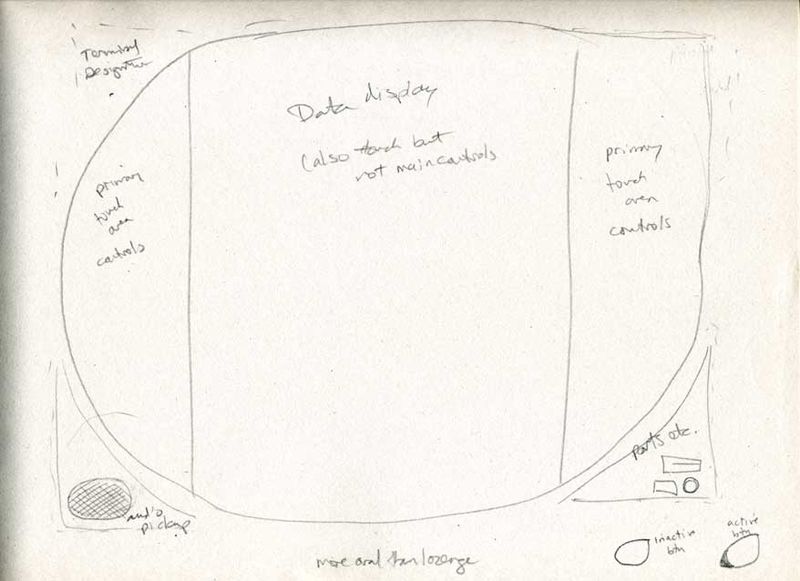 Terminal
Data display
(also touch but
not main controls
primary
touch
area
controls
primary
touch
area
controls
ports etc.
audio
pickup
inactive
btn
active
btn
more oval than lozenge